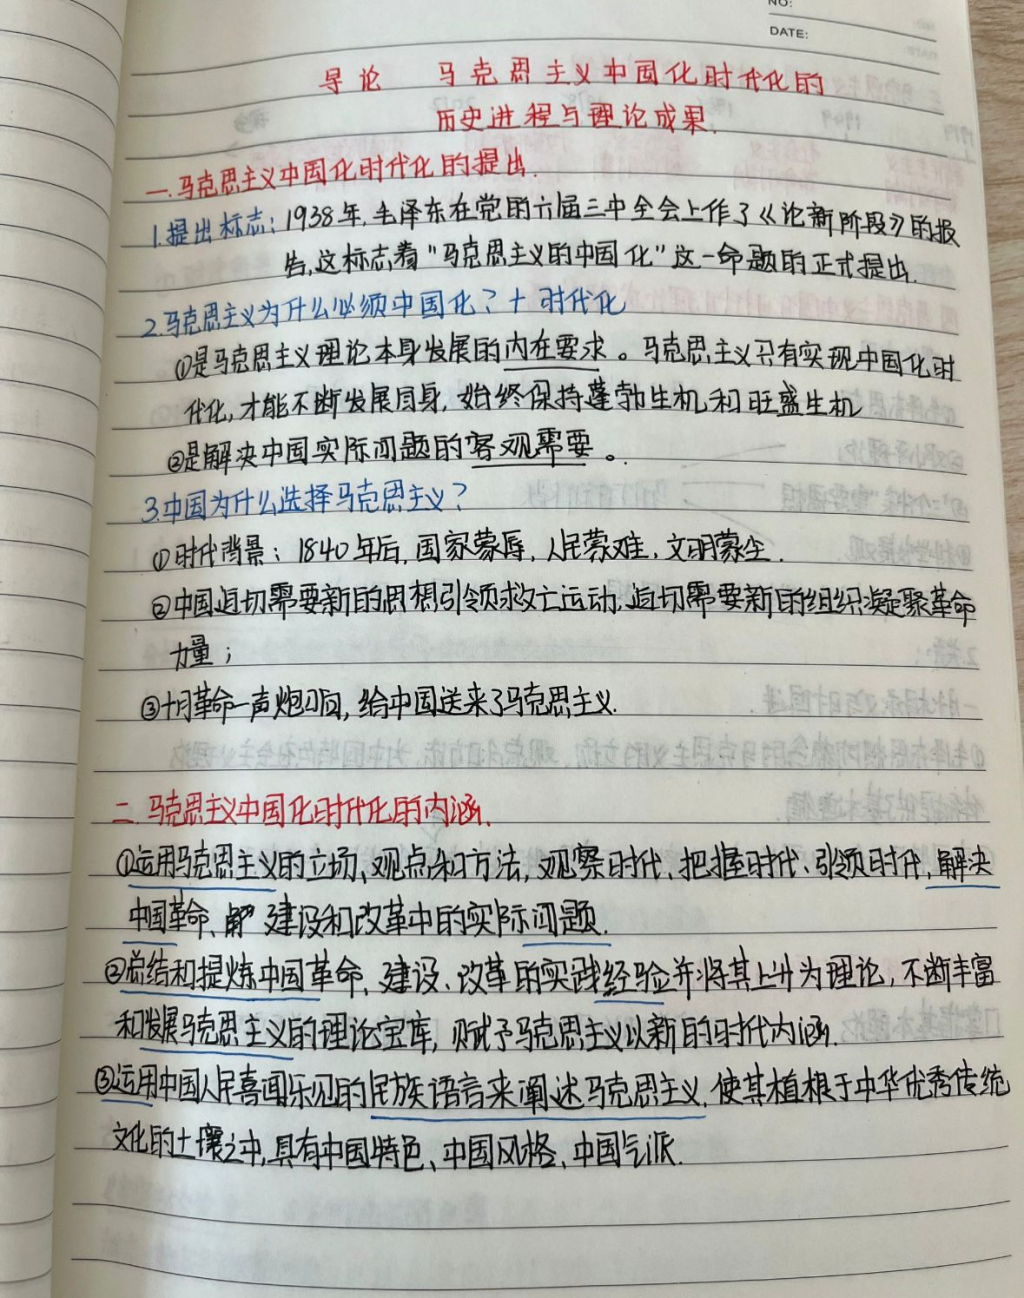 NO:
DATE:
导论 马克思主义中国化时代化的
历史进程与理论成果.
一.马克思主义中国化时代化的提出.
1.提出标志:1938年,毛泽东在党的六届三中全会上作了《论新阶段》的报
告,这标志着“马克思主义的中国化”这一命题的正式提出.
2.马克思主义为什么必须中国化?十时代化
①是马克思主义理论本身发展的内在要求。马克思主义只有实现中国化时
代化,才能不断发展自身,始终保持蓬勃生机和旺盛生机
②是解决中国实际问题的客观需要。
3.中国为什么选择马克思主义?
①时代背景:1840年后,国家蒙辱,人民蒙难,文明蒙尘.
②中国迫切需要新的思想引领救亡运动,迫切需要新的组织凝聚革命
力量;
③十月革命一声炮响,给中国送来了马克思主义.
二.马克思主义中国化时代化的内涵.
①运用马克思主义的立场、观点和方法,观察时代、把握时代、引领时代,解决
中国革命、建设和改革中的实际问题.
②总结和提炼中国革命、建设、改革的实践经验并将其上升为理论,不断丰富
和发展马克思主义的理论宝库,赋予马克思主义以新的时代内涵.
③运用中国人民喜闻乐见的民族语言来阐述马克思主义,使其植根于中华优秀传统
文化的土壤之中,具有中国特色、中国风格、中国气派.